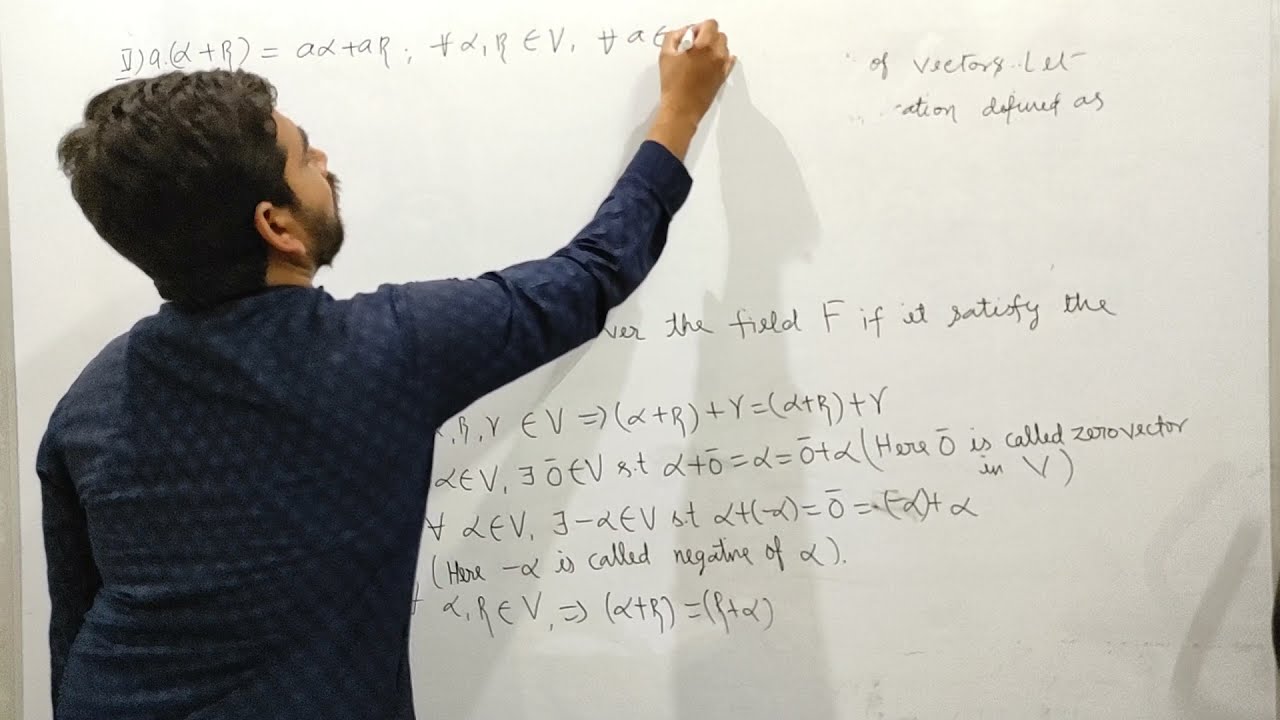 V) a.(α+β) = aα+aβ ; ∀ α,β ∈ V, ∀ a ∈
of vectors. Let
ation defined as
ver the field F if it satisfy the
α,β,γ ∈ V => (α+β)+γ=(α+β)+γ
α∈V, ∃ 0̄∈V s.t α+0̄=α=0̄+α (Here 0̄ is called zero vector
in V)
∀ α∈V, ∃-α∈V s.t α+(-α)=0̄=(-α)+α
(Here -α is called negative of α).
α,β∈V, => (α+β)=(β+α)